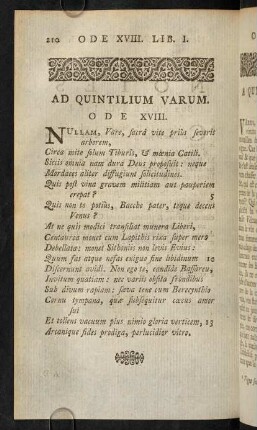 210 ODE XVIII. LIB. I.
AD QUINTILIUM VARUM.
ODE XVIII.
NULLAM, Vare, sacrâ vite priùs severis
arborem,
Circa mite solum Tiburis, & mœnia Catili.
Siccis omnia nam dura Deus proposuit: neque
Mordaces aliter diffugiunt solicitudines.
Quis post vina gravem militiam aut pauperiem
crepat? 5
Quis non te potiùs, Bacche pater, teque decens
Venus?
At ne quis modici transiliat munera Liberi,
Centaurea monet cum Lapithis rixa super mero
Debellata: monet Sithoniis non levis Evius:
Quum fas atque nefas exiguo fine libidinum 10
Discernunt avidi. Non ego te, candide Bassareu,
Invitum quatiam: nec variis obsita frondibus
Sub divum rapiam: sæva tene cum Berecynthio
Cornu tympana, quæ subsequitur cæcus amor
sui
Et tollens vacuum plus nimio gloria verticem, 15
Arcanique fides prodiga, perlucidior vitro.